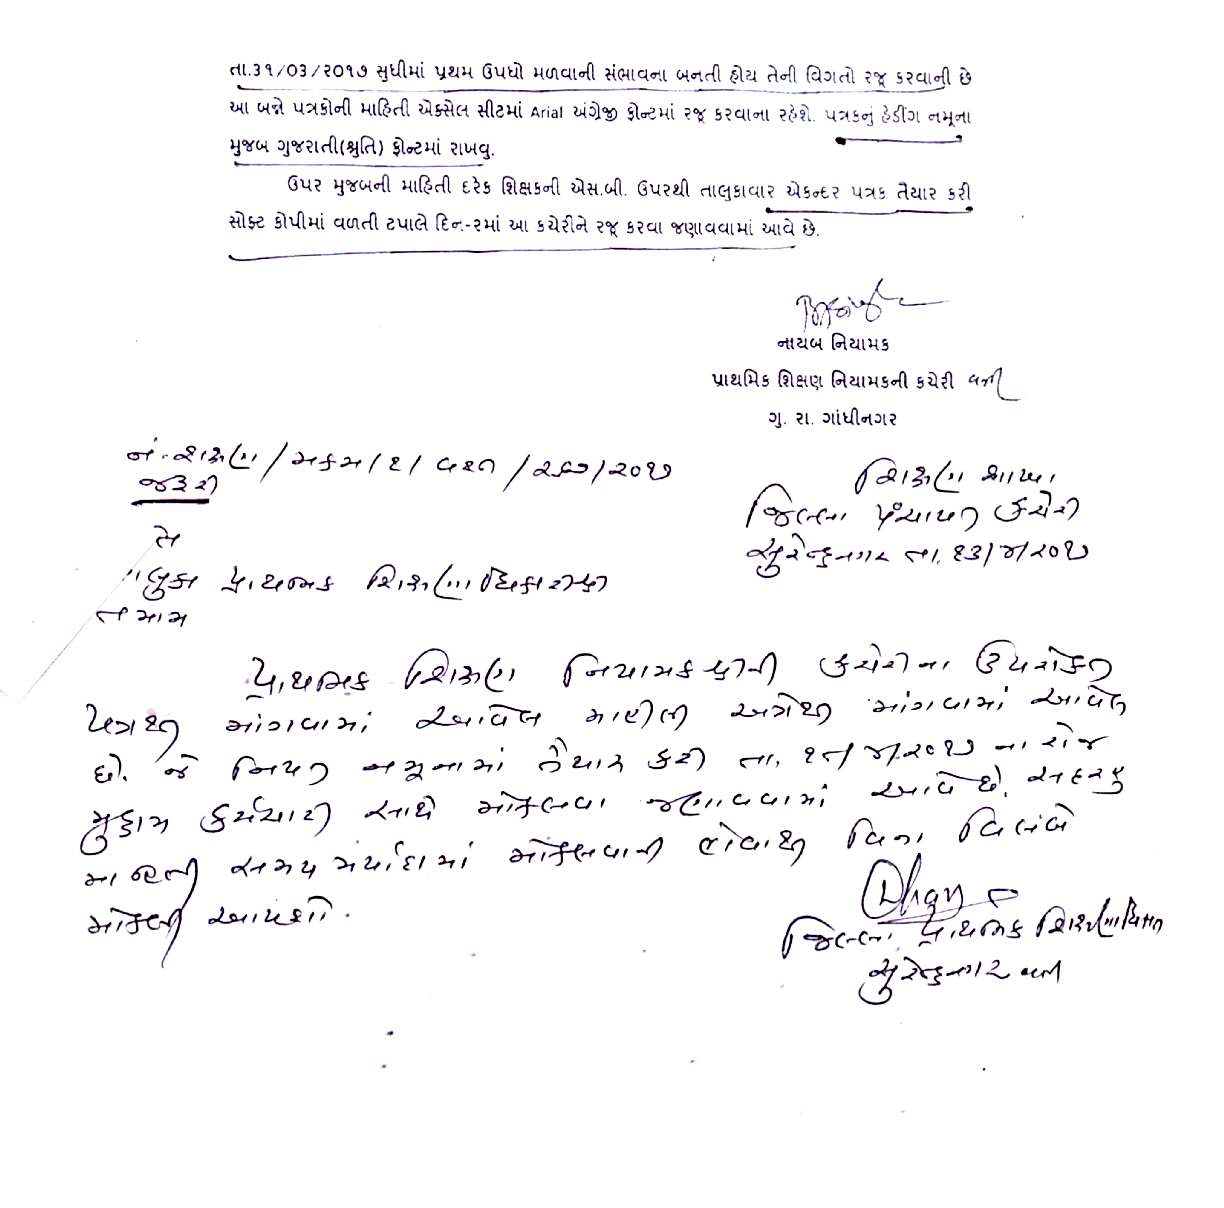 તા.૩૧/૦૩/૨૦૧૭ સુધીમાં પ્રથમ ઉપધો મળવાની સંભાવના બનતી હોય તેની વિગતો રજૂ કરવાની છે
આ બન્ને પત્રકોની માહિતી એક્સેલ સીટમાં Arial અંગ્રેજી ફોન્ટમાં રજૂ કરવાના રહેશે. પત્રકનું હેડીંગ નમૂના
મુજબ ગુજરાતી(શ્રુતિ) ફોન્ટમાં રાખવુ.
ઉપર મુજબની માહિતી દરેક શિક્ષકની એસ.બી. ઉપરથી તાલુકાવાર એકન્દર પત્રક તૈયાર કરી
સોફ્ટ કોપીમાં વળતી ટપાલે દિન-૨માં આ કચેરીને રજૂ કરવા જણાવવામાં આવે છે.
નાયબ નિયામક
પ્રાથમિક શિક્ષણ નિયામકની કચેરી વતી
ગુ. રા. ગાંધીનગર
નં-શિક્ષણ/મકમ/૨/વશત/૨૮૭/૨૦૧૭
જરૂરી
શિક્ષણ શાખા
જિલ્લા પંચાયત કચેરી
સુરેન્દ્રનગર તા. ૧૩/૪/૨૦૧૭
તાલુકા પ્રાથમિક શિક્ષણાધિકારીશ્રી
તમામ
પ્રાથમિક શિક્ષણ નિયામકશ્રીની કચેરીના ઉપરોક્ત
પત્રથી માંગવામાં આવેલ માહિતી અત્રેથી માંગવામાં આવેલ
છે. જે નિયત નમૂનામાં તૈયાર કરી તા. ૧૯/૪/૨૦૧૭ ના રોજ
કર્મચારી સાથે મોકલવા જણાવવામાં આવે છે. સદરહુ
માહિતી સમય મર્યાદામાં મોકલવાની હોવાથી વિના વિલંબે
મોકલી આપશો.
જિલ્લા પ્રાથમિક શિક્ષણાધિકારી
સુરેન્દ્રનગર વતી